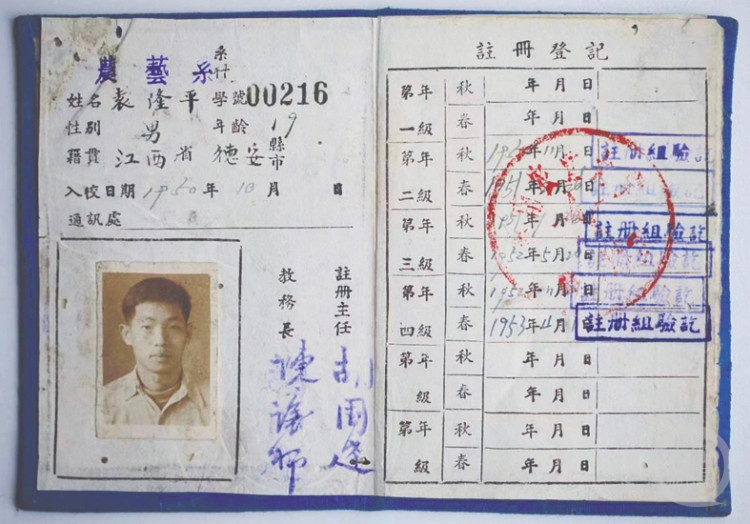 系
科
農藝系
姓名 袁隆平 學號 00216
性別 男 年齡 19
籍貫 江西省 德安 縣市
入校日期 1950年 10月 日
通訊處
註冊主任
教務長
註冊登記
第一年級 秋 年 月 日
春 年 月 日
第二年級 秋 年11月 日 註冊組驗訖
春 1951年 月 日 註冊組驗訖
第三年級 秋 年 月 日 註冊組驗訖
春 1952年5月 日 註冊組驗訖
第四年級 秋 1952年11月 日 註冊組驗訖
春 1953年4月 日 註冊組驗訖
第年級 秋 年 月 日
春 年 月 日
第年級 秋 年 月 日
春 年 月 日